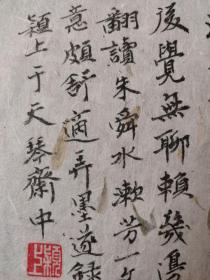 後覺無聊賴幾
翻讀朱舜水漱芳一
意頗舒適弄墨遂録
穎上于天琴齋中